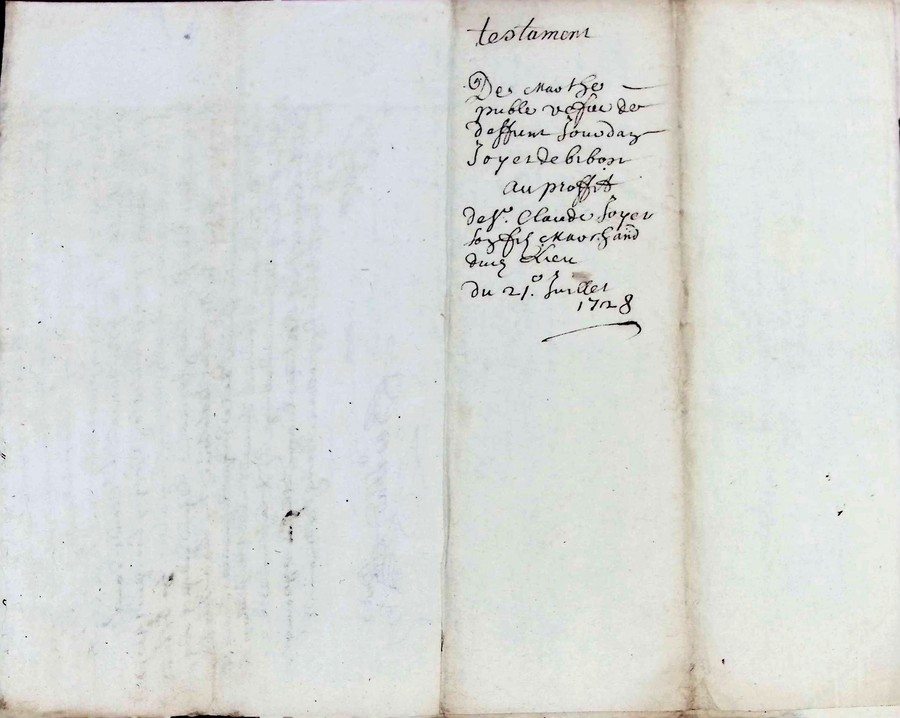 testament
De Marthe
puble vefue de
deffunt Jourdaz
Joyer de bibost
au proffit
de Sr. Claude Joyer
soz filz Marchand
dud. Lieu
du 21e. Juillet
1728